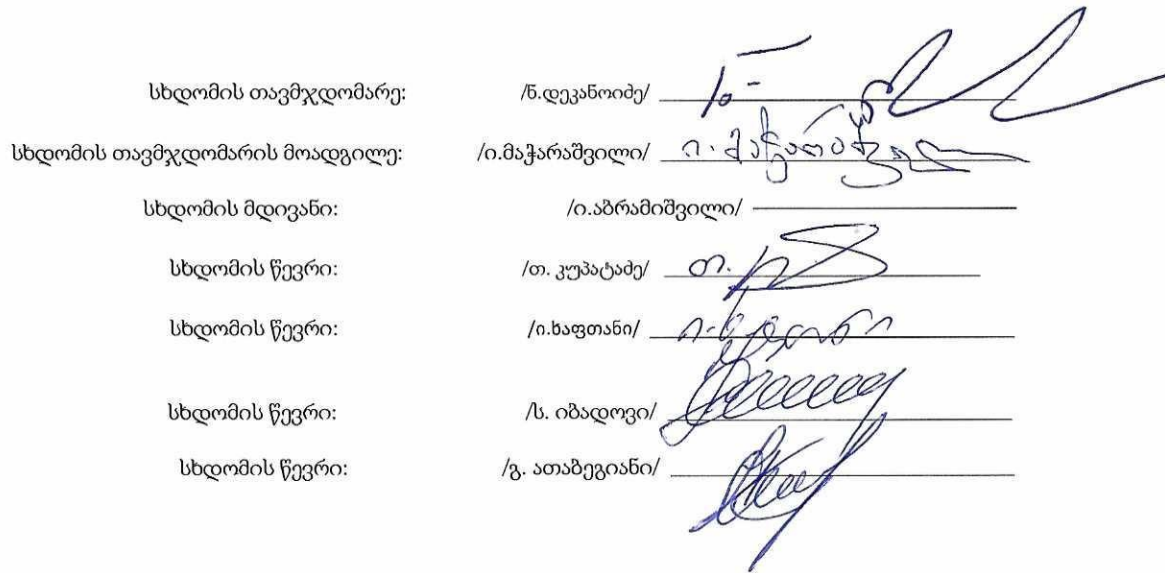 სხდომის თავმჯდომარე: /ნ.დეკანოიძე/
სხდომის თავმჯდომარის მოადგილე: /ი.მაჭარაშვილი/ ი. მაჭარაშვილი
სხდომის მდივანი: /ი.აბრამიშვილი/
სხდომის წევრი: /თ. კუპატაძე/ თ.
სხდომის წევრი: /ი.ხაფთანი/ ი.ხაფთანი
სხდომის წევრი: /ს. იბადოვი/
სხდომის წევრი: /გ. ათაბეგიანი/